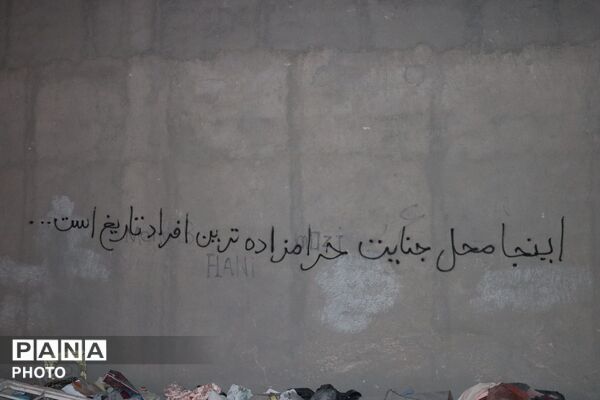 اینجا محل جنایت حرامزاده ترین افراد تاریخ است...
HANI
PANA
PHOTO